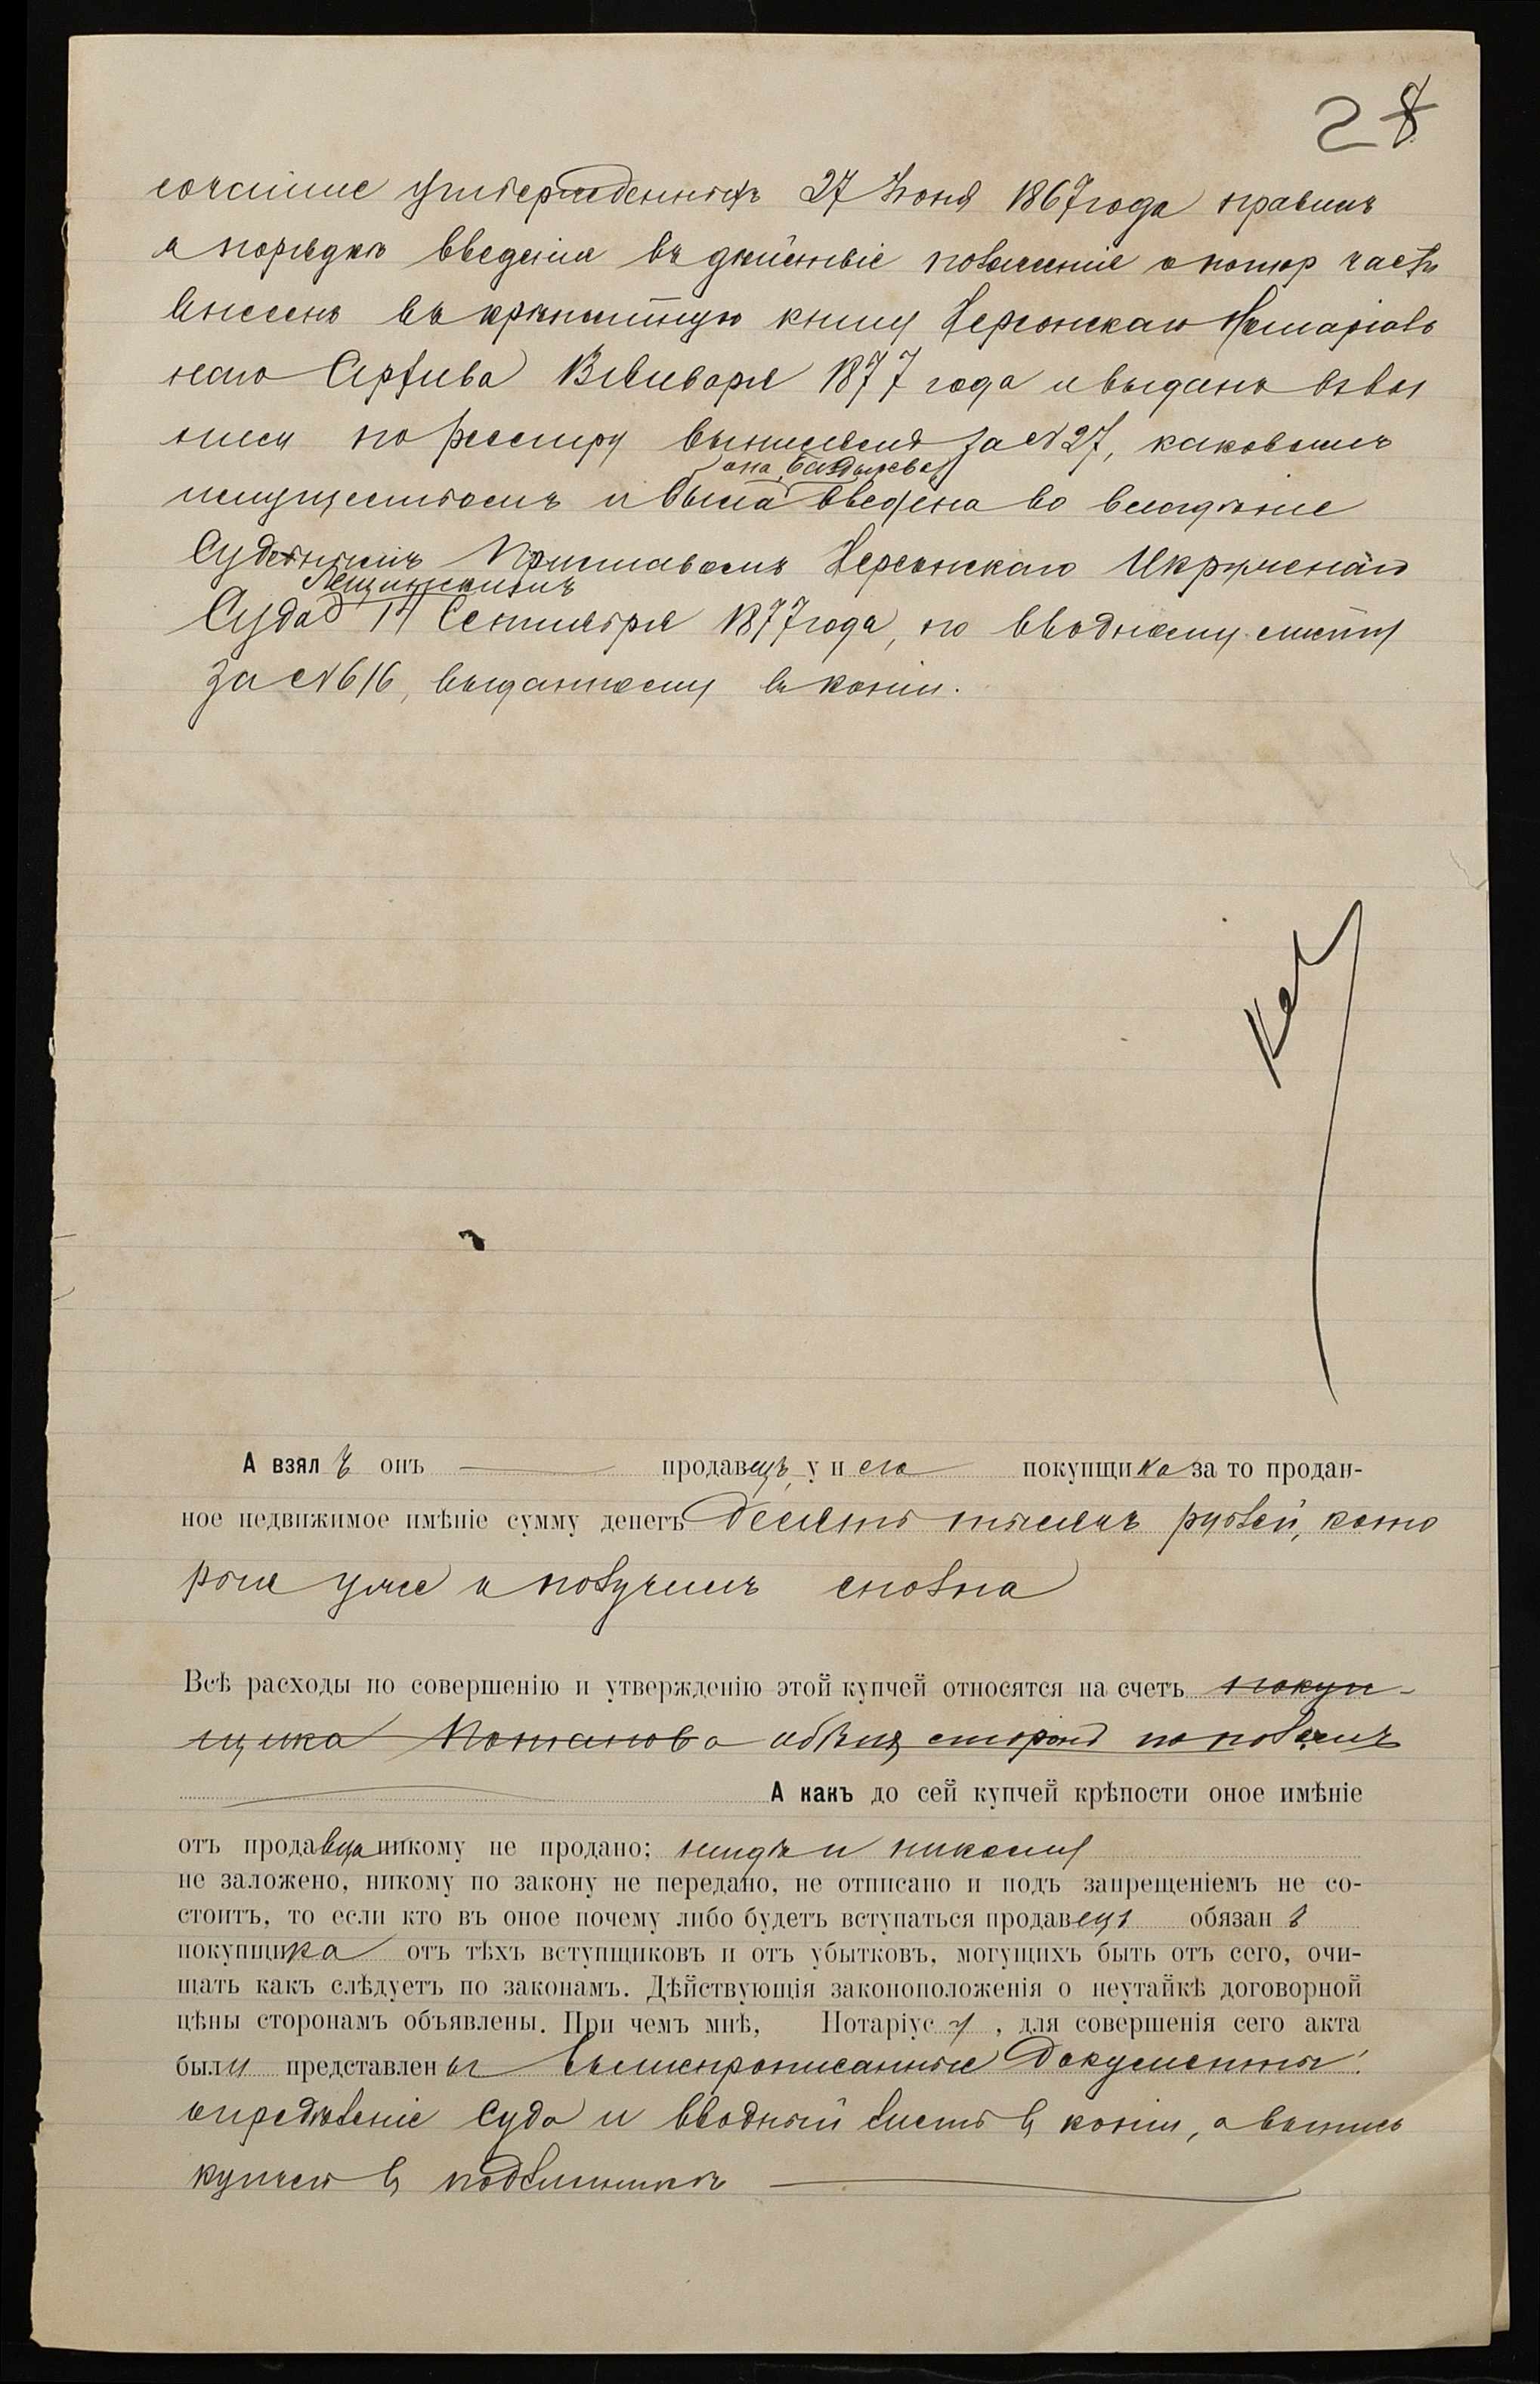 28
сочайше утвержденныхъ 27 Іюня 1867 года правилъ
о порядкѣ введенія въ дѣйствіе положенія о нотар части
внесенъ въ крѣпостную книгу Херсонскаго Нотаріаль
наго Архива Января 1877 года и выданъ
писи по реестру за № 27, каковымъ
она,
имуществомъ и была введена во владѣніе
Судебнымъ Приставомъ Херсонскаго Окружнаго
Лещинскимъ
Суда 14 Сентября 1877 года, по вводному листу
за № 616, выданному въ копіи.
А взялъ онъ продавецъ, у него покупщика за то продан-
ное недвижимое имѣніе сумму денегъ Десять тысячъ рублей, кото
рыя уже и получилъ сполна
Всѣ расходы по совершенію и утвержденію этой купчей относятся на счетъ покуп-
щика Потапова обѣихъ сторонъ по поламъ
А какъ до сей купчей крѣпости оное имѣніе
отъ продавца никому не продано; нигдѣ и никому
не заложено, никому по закону не передано, не отписано и подъ запрещеніемъ не со-
стоитъ, то если кто въ оное почему либо будетъ вступаться продавецъ обязанъ
покупщика отъ тѣхъ вступщиковъ и отъ убытковъ, могущихъ быть отъ сего, очи-
щать какъ слѣдуетъ по законамъ. Дѣйствующія законоположенія о неутайкѣ договорной
цѣны сторонамъ объявлены. При чемъ мнѣ, Нотаріусу, для совершенія сего акта
были представлены вышепрописанные документы:
опредѣленіе Суда и вводный листъ въ копіи, а выпись
купчей въ подлинникѣ